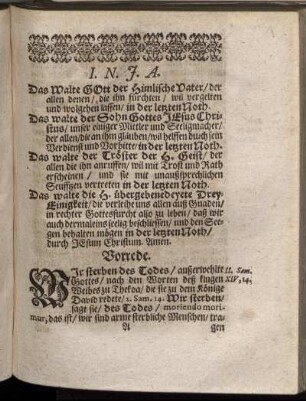 I. N. J. A.
Das Walte GOtt der Himlische Vater / der
allen denen / die ihn fürchten / wil vergelten
und wolgehen lassen / in der letzten Noth.
Das walte der Sohn Gottes JEsus Chri-
stus / unser einiger Mittler und Seeligmacher /
der allen / die an ihm gläuben / wil helffen durch sein
Verdienst und Vorbitte / in der letzten Noth.
Das walte der Tröster der H. Geist / der
allen die ihn anruffen / wil mit Trost und Rath
erscheinen / und sie mit unaußsprechlichen
Seuffzen vertreten in der letzten Noth.
Das walte die H. übergebenedeyete Drey-
Einigkeit / die verleihe uns allen auß Gnaden /
in rechter Gottesfurcht also zu leben / daß wir
auch dermaleins seelig beschliessen / und den See-
gen behalten mögen in der letzten Noth /
durch JEsum Christum. Amen.
Vorrede.
Wir sterben des Todes / außerwehlte II. Sam.
Gottes / nach den Worten deß klugen XIV, 14.
Weibes zu Thekoa / die sie zu dem Könige
David redete / 2. Sam. 14. Wir sterben /
sagt sie / des Todes / moriendo mori-
mur, das ist / wir sind arme sterbliche Menschen / tra-
A gen